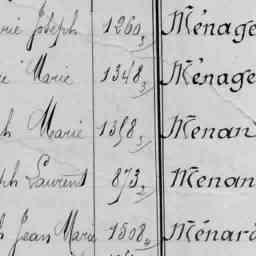 rie Joseph 1260 3 Ménage
ie Marie 1348 3 Ménage
ph Marie 1358 3 Menan
ph Laurent 873 3 Menan
h Jean Marie 1508 4 Ménard